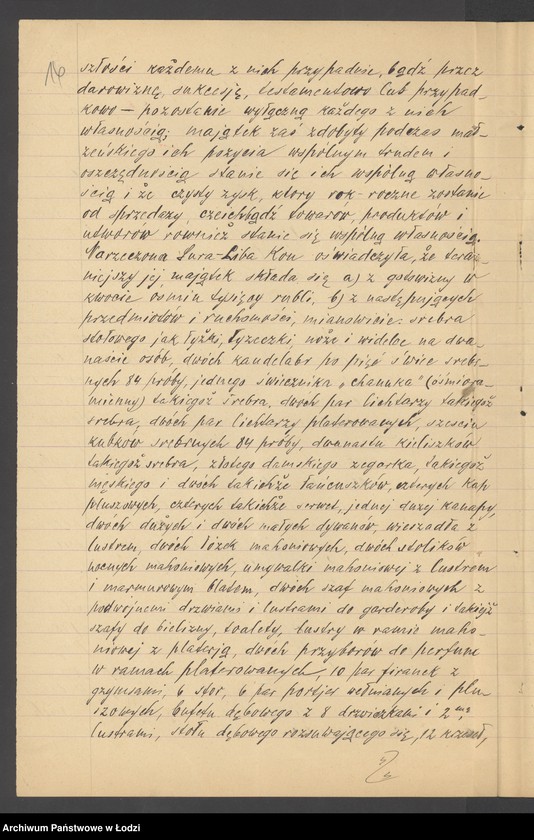 16
szłości każdemu z nich przypadnie, bądź przez
darowiznę, sukcesję, testamentowo lub przypad-
kowo — pozostanie wyłączną każdego z nich
własnością; majątek zaś zdobyty podczas mał-
żeńskiego ich pożycia wspólnym trudem i
oszczędnością stanie się ich wspólną własno-
ścią i że czysty zysk, który rok-rocznie zostanie
od sprzedaży, czegobądź towarów, produktów i
utworów również stanie się wspólną własnością.
Narzeczona Sura-Liba Kon oświadczyła, że teraź-
niejszy jej majątek składa się a) z gotowizny w
kwocie ośmiu tysięcy rubli, b) z następujących
przedmiotów i ruchomości, mianowicie: srebra
stołowego jak łyżki, łyżeczki, noże i widelce na dwa-
naście osób, dwóch kandelabr po pięć świec srebr-
nych 84 próby, jednego świecznika „chanuka" (ośmiora-
mienny) takiegoż srebra, dwóch par lichtarzy takiegoż
srebra, dwóch par lichtarzy platerowanych, sześciu
kubków srebrnych 84 próby, dwunastu kieliszków
takiegoż srebra, złotego damskiego zegarka, takiegoż
męskiego i dwóch takichże łańcuszków, czterych kap
pluszowych, czterych takichże serwet, jednej dużej kanapy,
dwóch dużych i dwóch małych dywanów, wieszadła z
lustrem, dwóch łóżek mahoniowych, dwóch stolików
nocnych mahoniowych, umywalki mahoniowej z lustrem
i marmurowym blatem, dwóch szaf mahoniowych z
podwójnemi drzwiami i lustrami do garderoby i takiejż
szafy do bielizny, toalety, lustry w ramie maho-
niowej z platerją, dwóch przyborów do perfum
w ramach platerowanych, 10 par firanek z
gzymsami, 6 stor, 6 par portjer wełnianych i plu-
szowych, bufetu dębowego z 8 drzwiczkami i 2ma
lustrami, stołu dębowego rozsuwającego się, 12 krzeseł,
Archiwum Państwowe w Łodzi